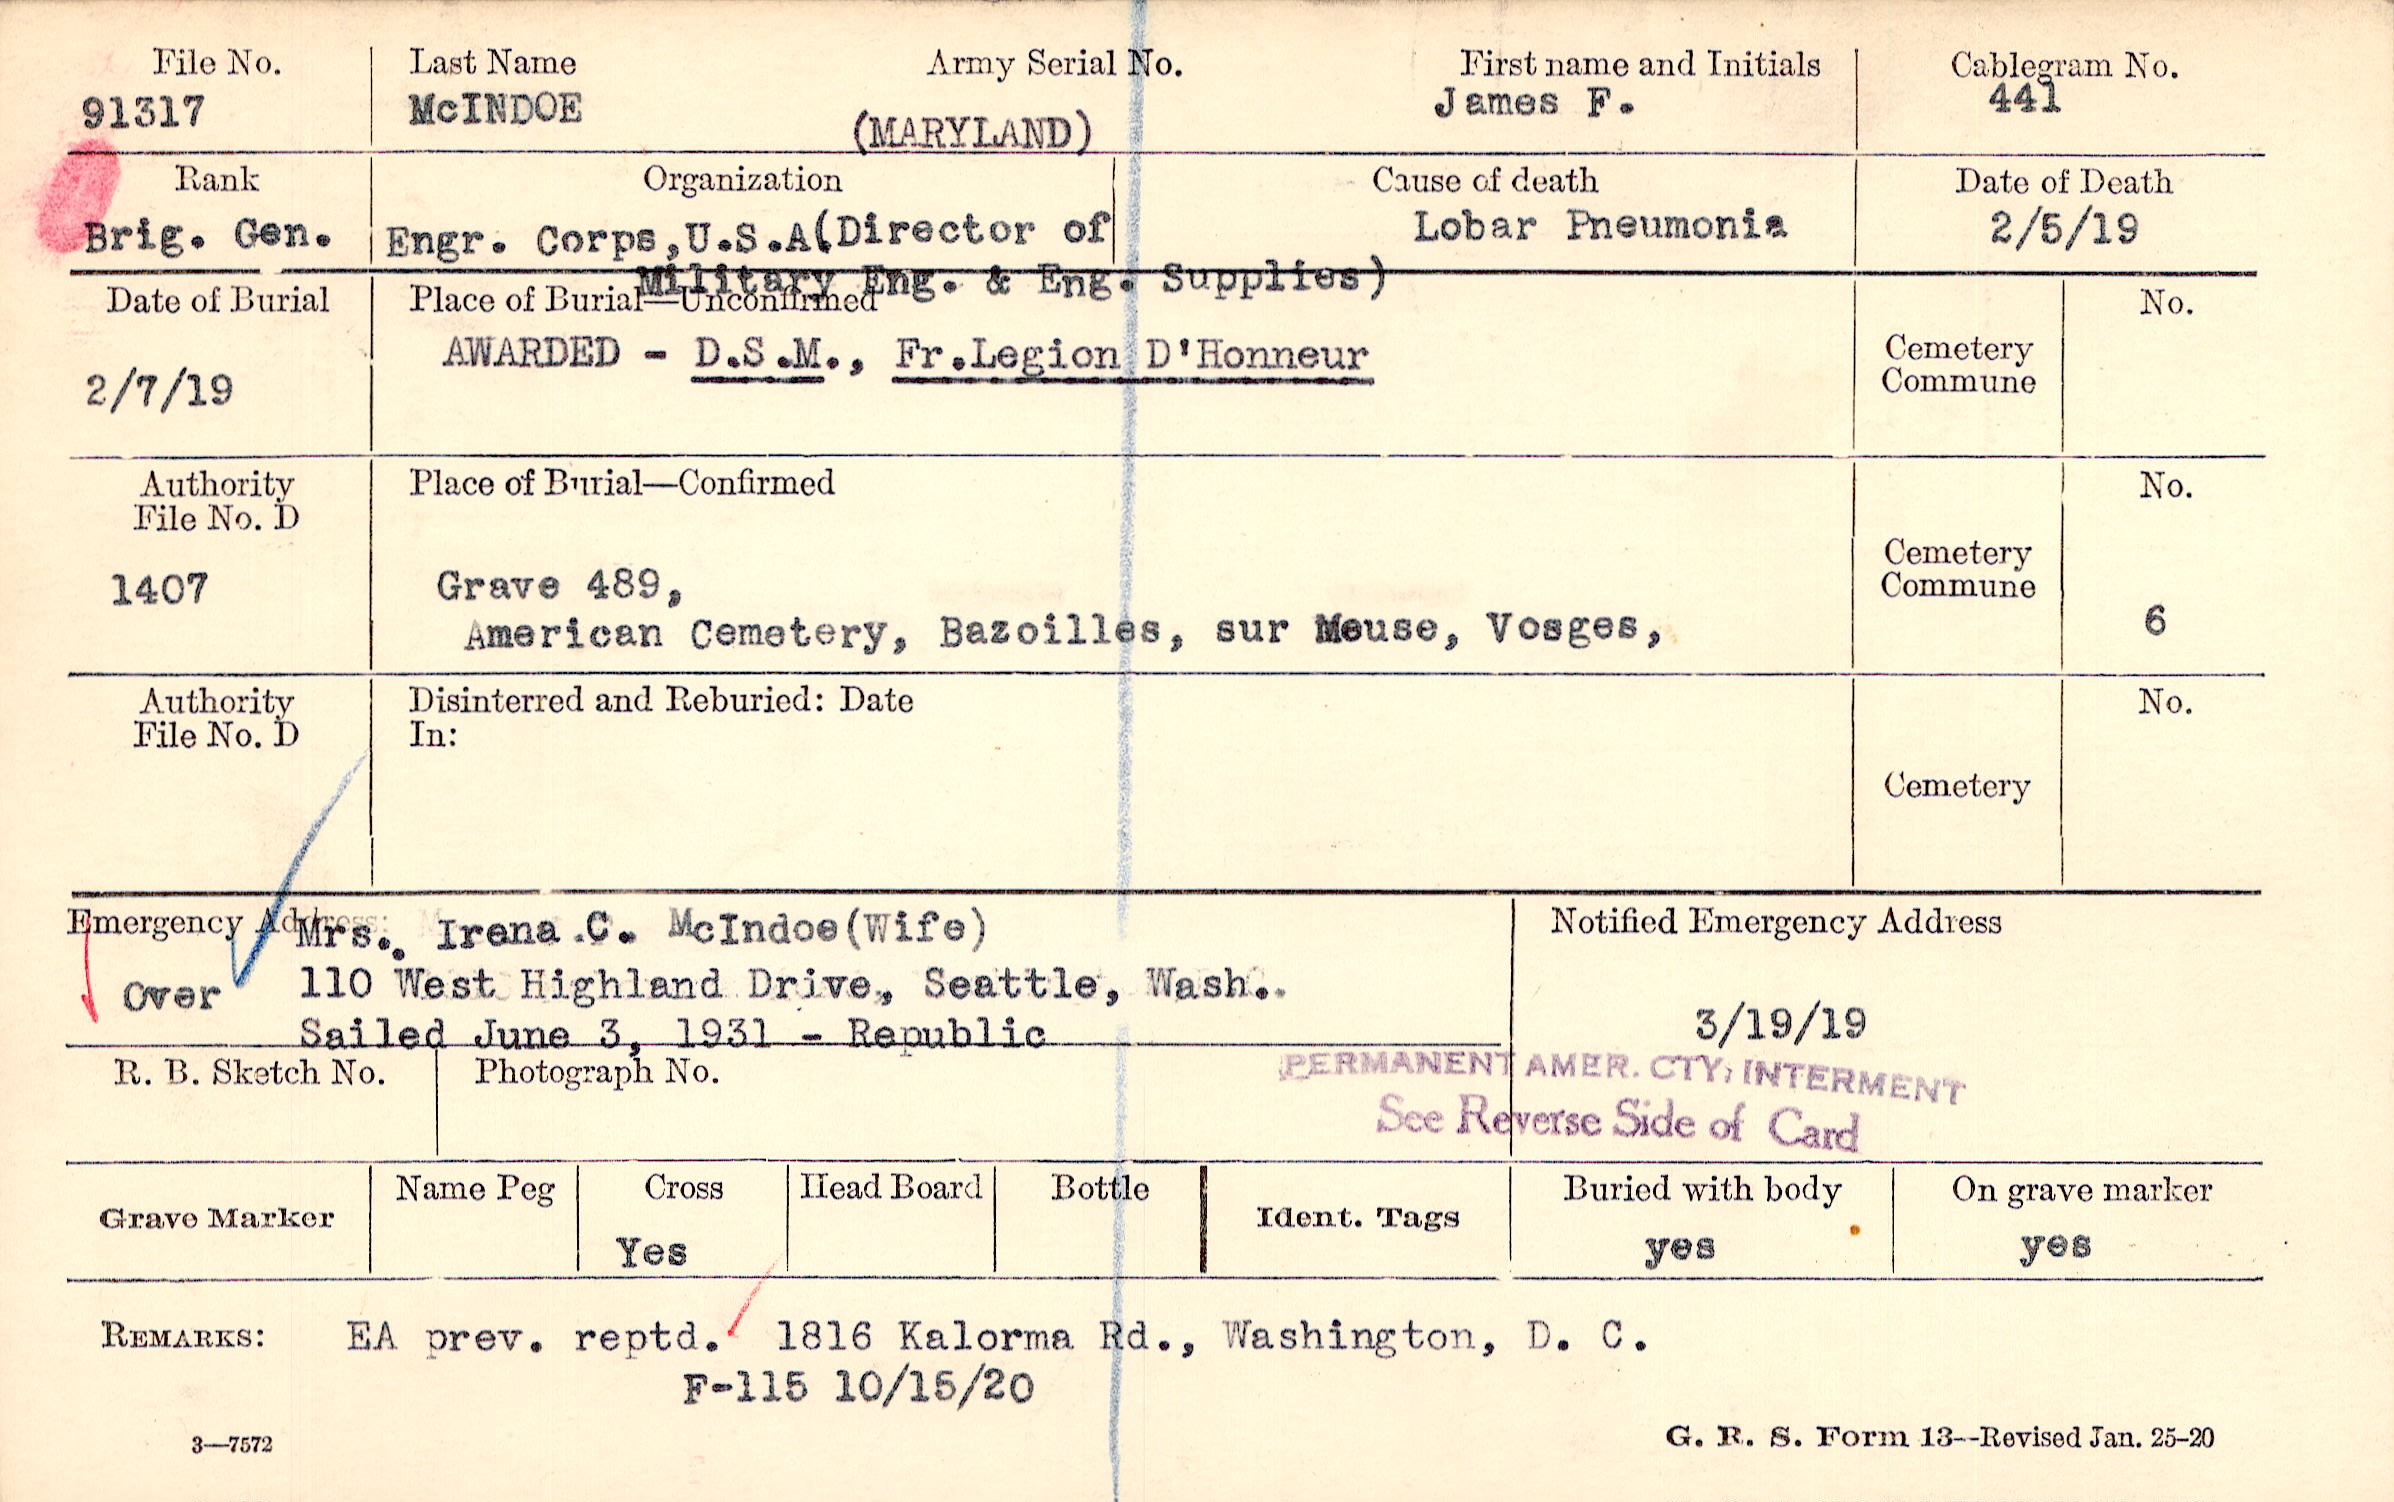 File No. Last Name Army Serial No. First name and Initials Cablegram No.
91317 McINDOE (MARYLAND) James F. 441
Rank Organization Cause of death Date of Death
Brig. Gen. Engr. Corps,U.S.A(Director of Lobar Pneumonia 2/5/19
Military Eng. & Eng. Supplies)
Date of Burial Place of Burial—Unconfirmed No.
AWARDED - D.S.M., Fr.Legion D'Honneur Cemetery
2/7/19 Commune
Authority Place of Burial—Confirmed No.
File No. D
Cemetery
1407 Grave 489, Commune
American Cemetery, Bazoilles, sur Meuse, Vosges, 6
Authority Disinterred and Reburied: Date No.
File No. D In:
Cemetery
Emergency Address: Mrs. Irena C. McIndoe(Wife) Notified Emergency Address
Over 110 West Highland Drive, Seattle, Wash.
Sailed June 3, 1931 - Republic 3/19/19
R. B. Sketch No. Photograph No. PERMANENT AMER. CTY, INTERMENT
See Reverse Side of Card
Grave Marker Name Peg Cross Head Board Bottle Ident. Tags Buried with body On grave marker
Yes yes yes
REMARKS: EA prev. reptd. 1816 Kalorma Rd., Washington, D. C.
F-115 10/15/20
3—7572 G. R. S. Form 13--Revised Jan. 25-20